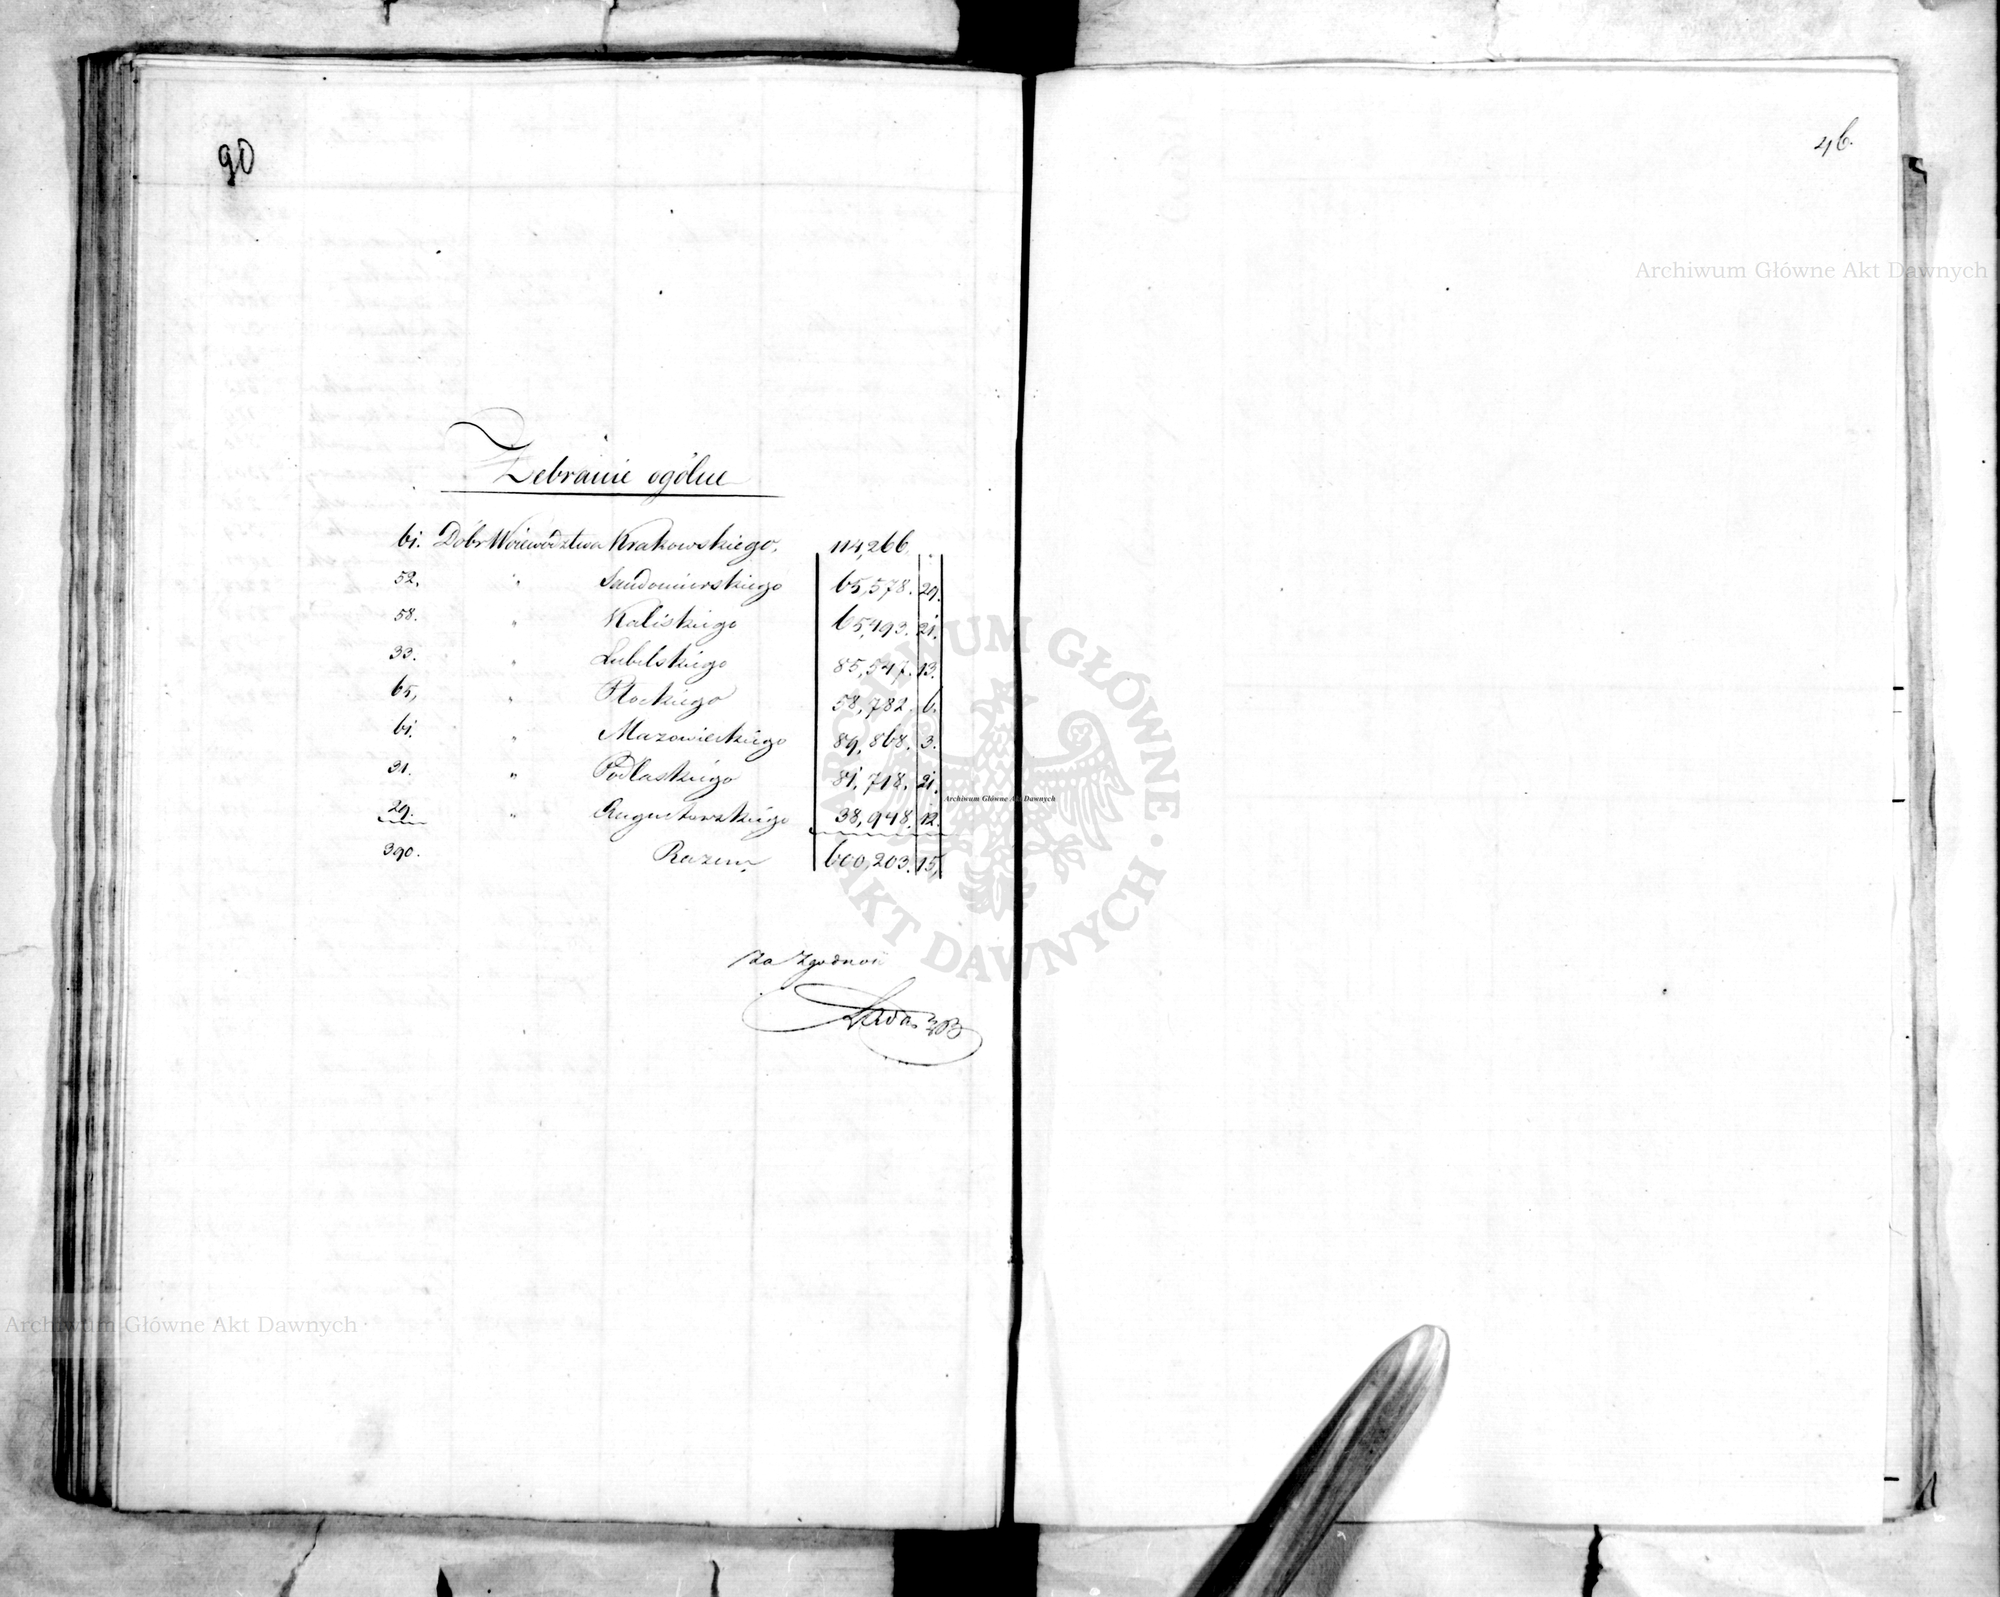 90
46.
Zebranie ogólne
61. Dóbr Województwa Krakowskiego. 114,266. .
52. " Sandomierskiego 65,578. 29.
58. " Kaliskiego 65,493. 21.
33. " Lubelskiego 85,547. 13.
65, " Płockiego 58,782. 6.
61. " Mazowieckiego 89,868. 3.
31. " Podlaskiego 81,718. 21.
29. " Augustowskiego 38,948. 12.
390. Razem, 600,203. 15,
Za Zgodność
Archiwum Główne Akt Dawnych
Archiwum Główne Akt Dawnych
Archiwum Główne Akt Dawnych
ARCHIWUM GŁÓWNE AKT DAWNYCH